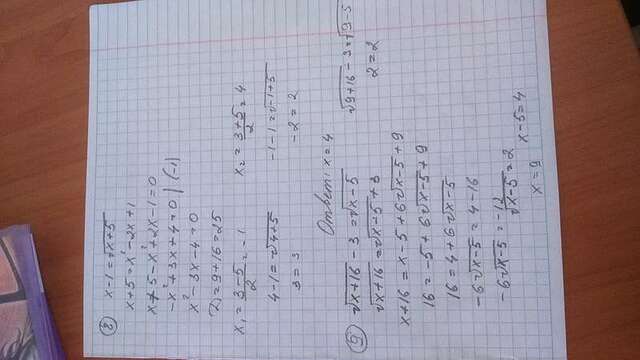 8) x-1=√x+5
x+5=x²-2x+1
x+5-x²+2x-1=0
-x²+3x+4=0 | (-1)
x²-3x-4=0
D=9+16=25
x₁=3-5/2=-1 x₂=3+5/2=4
4-1=√4+5 -1-1=√-1+5
3=3 -2=2
Ответ: x=4
9) √x+16-3=√x-5 √9+16-3=√9-5
√x+16=√x-5+3 2=2
x+16=x-5+6√x-5+9
16=-5+6√x-5+9
16=4+6√x-5
-6√x-5=4-16
-6√x-5=-12
√x-5=2 x-5=4
x=9